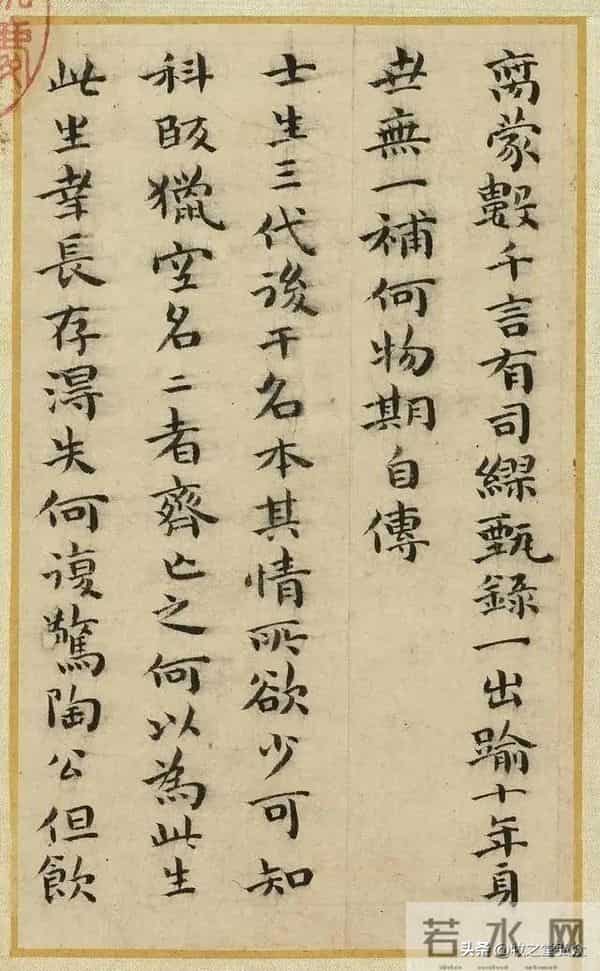 蒙數千言有司繆甄錄一出踰十年身
世無一補何物期自傳
士生三代後干名本其情所欲少可知
科獵空名二者齊亡之何以為此生
此坐幸長存得失何復驚陶公但飲
若水网
头条 @牧之堂